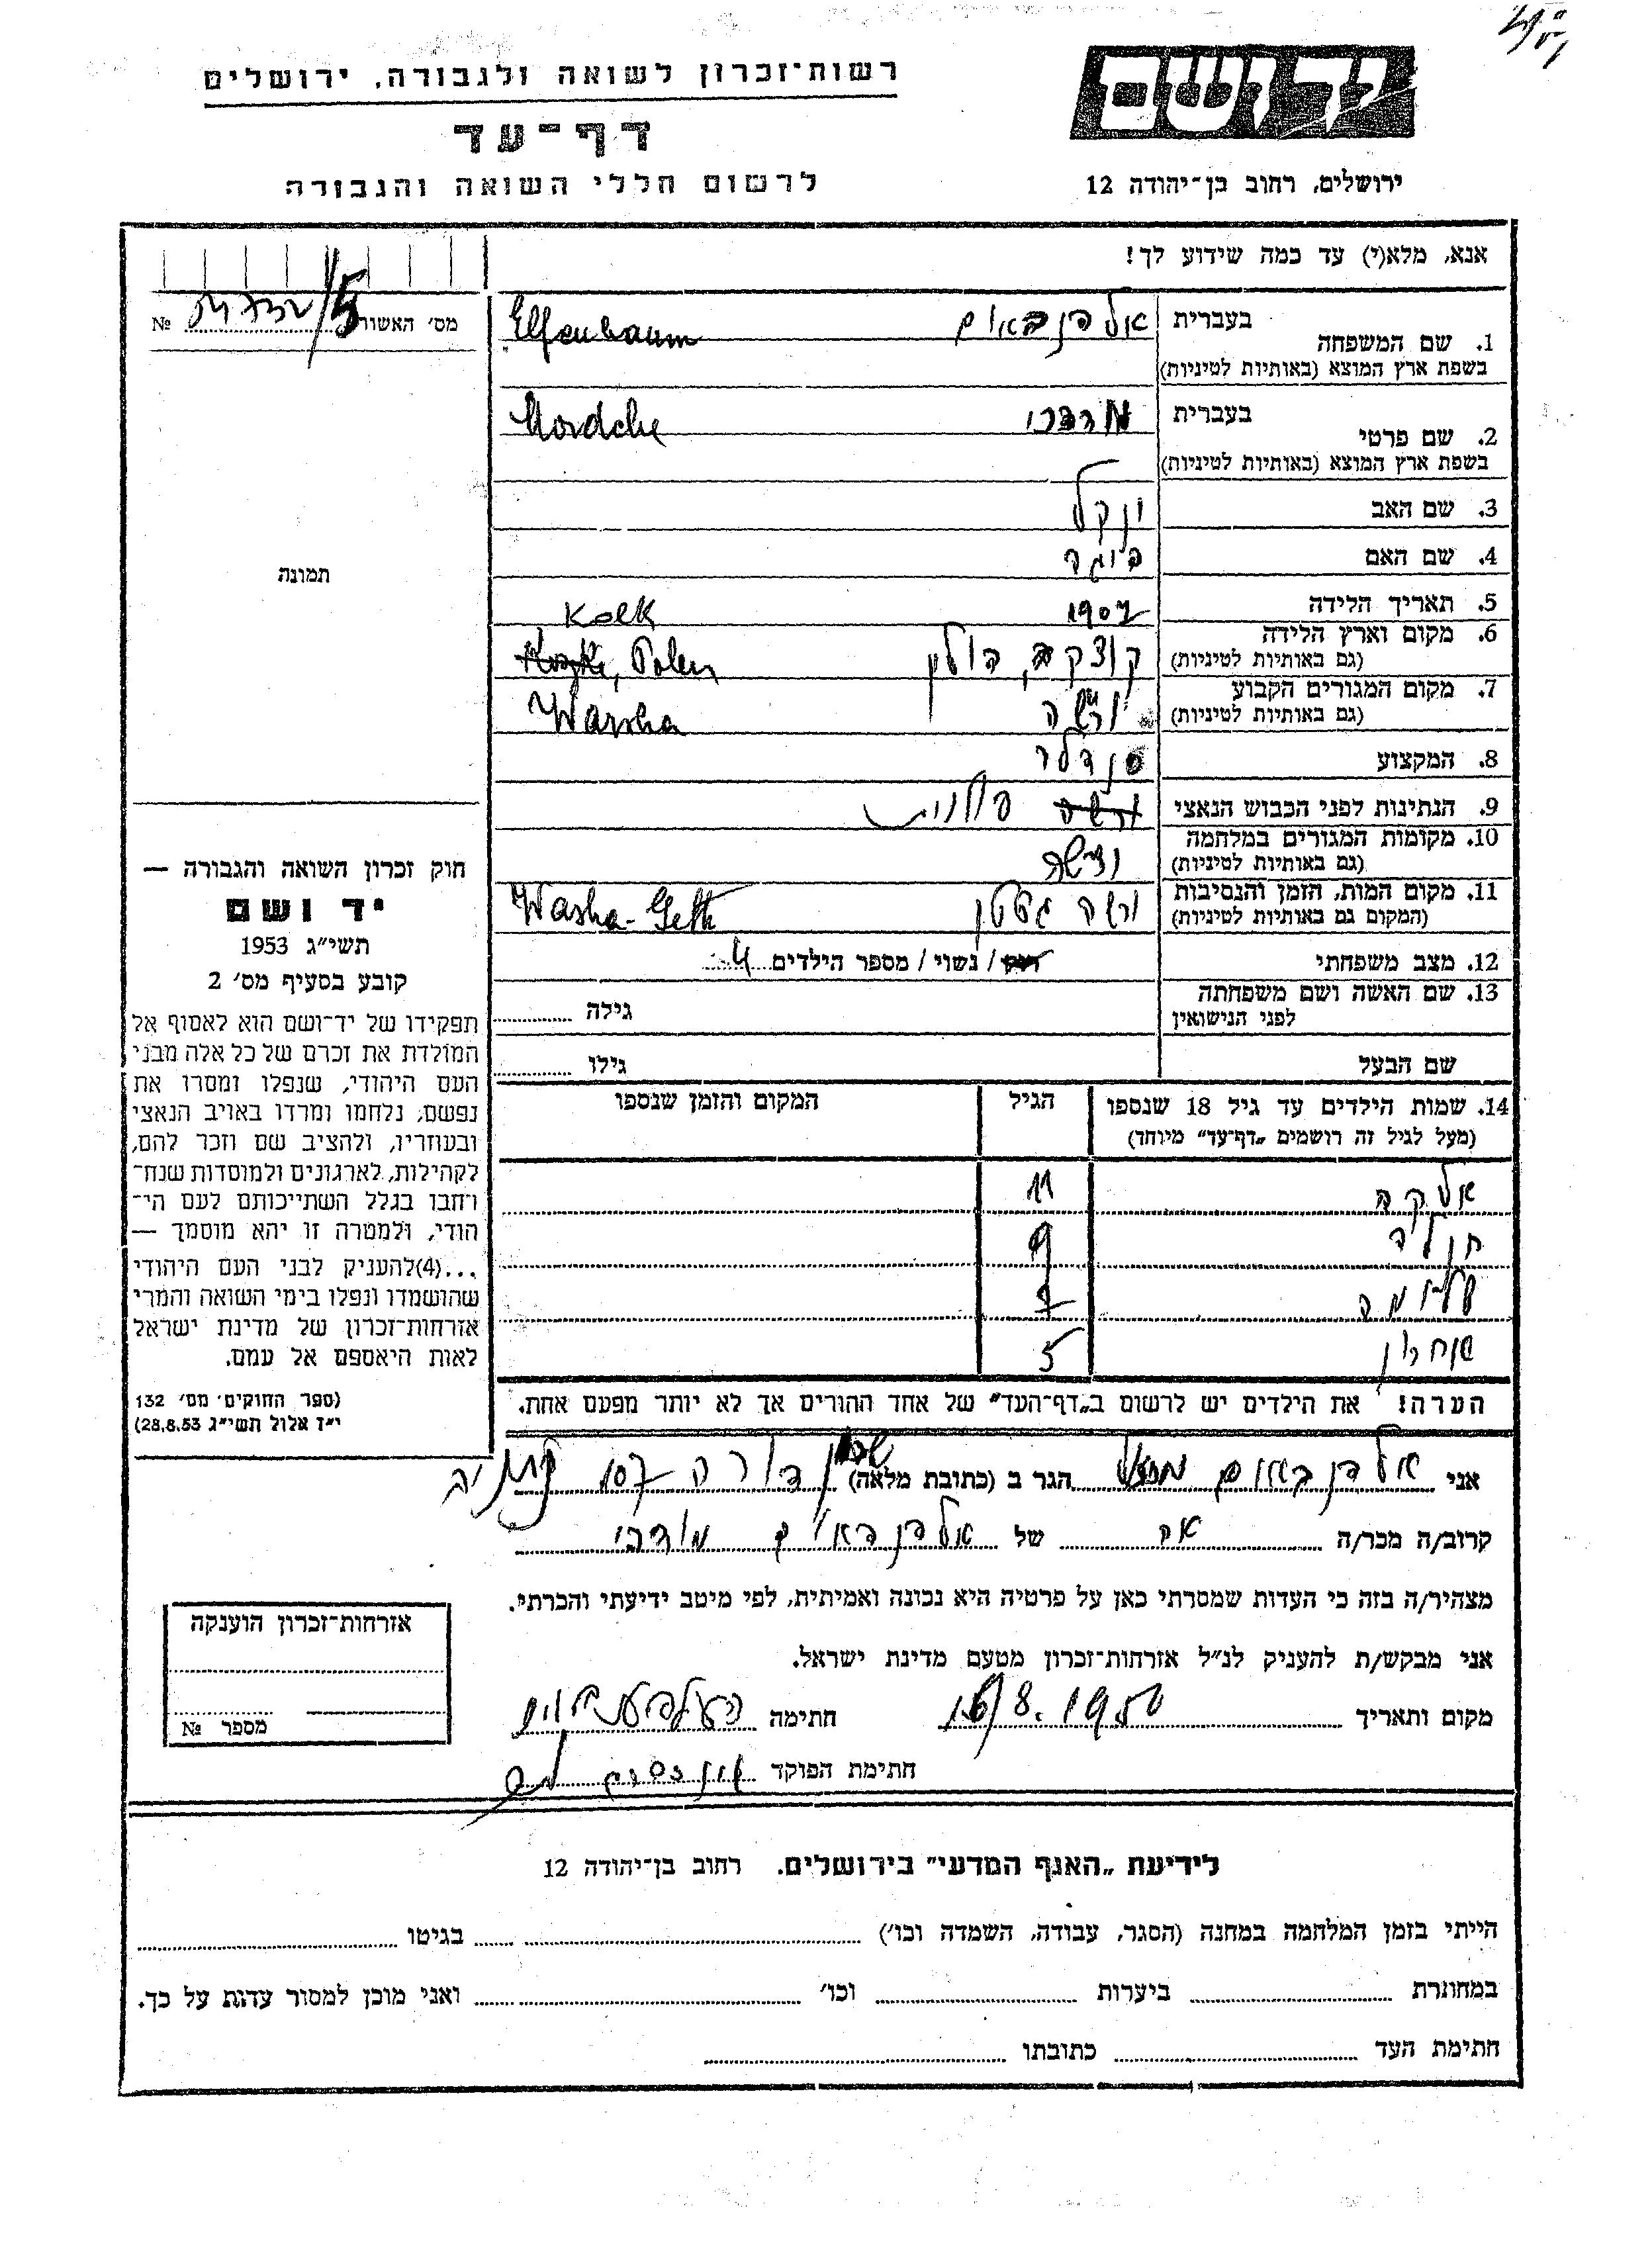 רשות־זכרון לשואה ולגבורה, ירושלים
דף־עד
לרשום חללי השואה והגבורה
יד ושם
ירושלים, רחוב בן־יהודה 12
אנא, מלא(י) עד כמה שידוע לך!
מס׳ האשור № 5
1. שם המשפחה בעברית אלפנבאום
בשפת ארץ המוצא (באותיות לטיניות) Elfenbaum
2. שם פרטי בעברית מרדכי
בשפת ארץ המוצא (באותיות לטיניות) Mordche
3. שם האב ינקל
4. שם האם
5. תאריך הלידה 1907
6. מקום וארץ הלידה קוצק פולין
(גם באותיות לטיניות) Kozk, Polen
7. מקום המגורים הקבוע ורשה
(גם באותיות לטיניות) Warsha
8. המקצוע סנדלר
9. הנתינות לפני הכבוש הנאצי פולנית
10. מקומות המגורים במלחמה ורשה
(גם באותיות לטיניות)
11. מקום המות, הזמן והנסיבות ורשה גטו
(המקום גם באותיות לטיניות) Washa-Gett
12. מצב משפחתי רווק / נשוי / מספר הילדים 4
13. שם האשה ושם משפחתה לפני הנישואין גילה
שם הבעל גילו
14. שמות הילדים עד גיל 18 שנספו הגיל המקום והזמן שנספו
(מעל לגיל זה רושמים „דף־עד" מיוחד)
אלקה 11
חנלה 9
שלומה 7
אהרון 5
הערה! את הילדים יש לרשום ב„דף־העד" של אחד ההורים אך לא יותר מפעם אחת.
תמונה
חוק זכרון השואה והגבורה —
יד ושם
תשי״ג 1953
קובע בסעיף מס׳ 2
תפקידו של יד־ושם הוא לאסוף אל
המולדת את זכרם של כל אלה מבני
העם היהודי, שנפלו ומסרו את
נפשם, נלחמו ומרדו באויב הנאצי
ובעוזריו, ולהציב שם וזכר להם,
לקהילות, לארגונים ולמוסדות שנח־
רחבו בגלל השתייכותם לעם הי־
הודי, ולמטרה זו יהא מוסמך —
...(4)להעניק לבני העם היהודי
שהושמדו ונפלו בימי השואה והמרי
אזרחות־זכרון של מדינת ישראל
לאות היאספם אל עמם.
(ספר החוקים׳ מס׳ 132
י״ז אלול תשי״ג 28.8.53)
אני אלפנבאום הגר ב (כתובת מלאה) שכון דורה 107 נתניה
קרוב/ה מכר/ה אח של אלפנבאום מרדכי
מצהיר/ה בזה כי העדות שמסרתי כאן על פרטיה היא נכונה ואמיתית, לפי מיטב ידיעתי והכרתי.
אני מבקש/ת להעניק לנ״ל אזרחות־זכרון מטעם מדינת ישראל.
מקום ותאריך חתימה
חתימת הפוקד
אזרחות־זכרון הוענקה
מספר №
לידיעת „האגף המדעי" בירושלים. רחוב בן־יהודה 12
הייתי בזמן המלחמה במחנה (הסגר, עבודה, השמדה וכו׳) בגיטו
במחתרת ביערות וכו׳ ואני מוכן למסור עדות על כך.
חתימת העד כתובתו